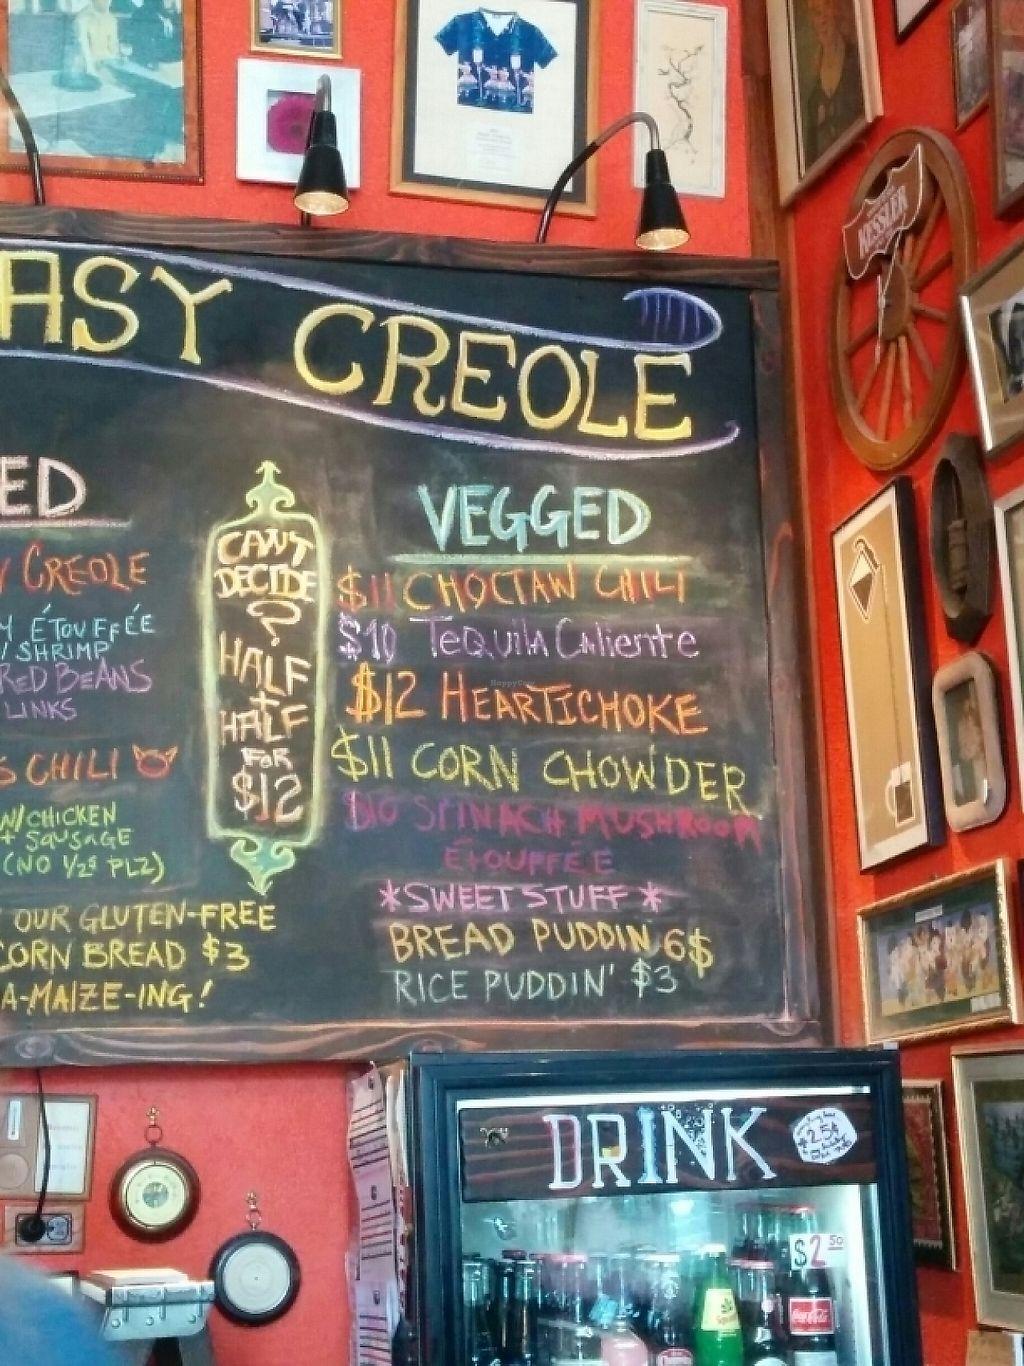 ASY CREOLE
ED
CREOLE
ÉTOUFFÉE
SHRIMP
RED BEANS
LINKS
CHILI
W/CHICKEN
+ SAUSAGE
(NO 1/2S PLZ)
OUR GLUTEN-FREE
CORN BREAD $3
A-MAIZE-ING!
CAN'T
DECIDE
?
HALF
+
HALF
FOR
$12
VEGGED
$11 CHOCTAW CHILI
$10 TEQUILA CALIENTE
$12 HEARTICHOKE
$11 CORN CHOWDER
$10 SPINACH MUSHROOM
ÉTOUFFÉE
*SWEET STUFF*
BREAD PUDDIN 6$
RICE PUDDIN' $3
KESSLER
DRINK
25¢
$2 50
Coca-Cola
HappyCow